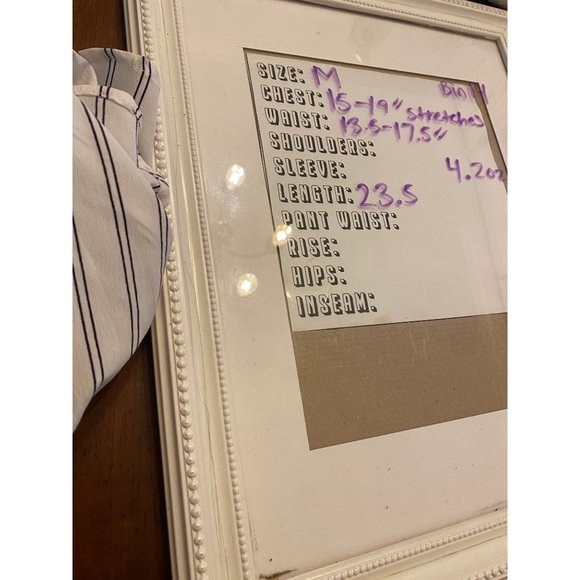 SIZE: M Bin 14
CHEST: 15-19" stretches
WAIST: 13.5-17.5"
SHOULDERS:
SLEEVE: 4.2oz
LENGTH: 23.5
PANT WAIST:
RISE:
HIPS:
INSEAM: